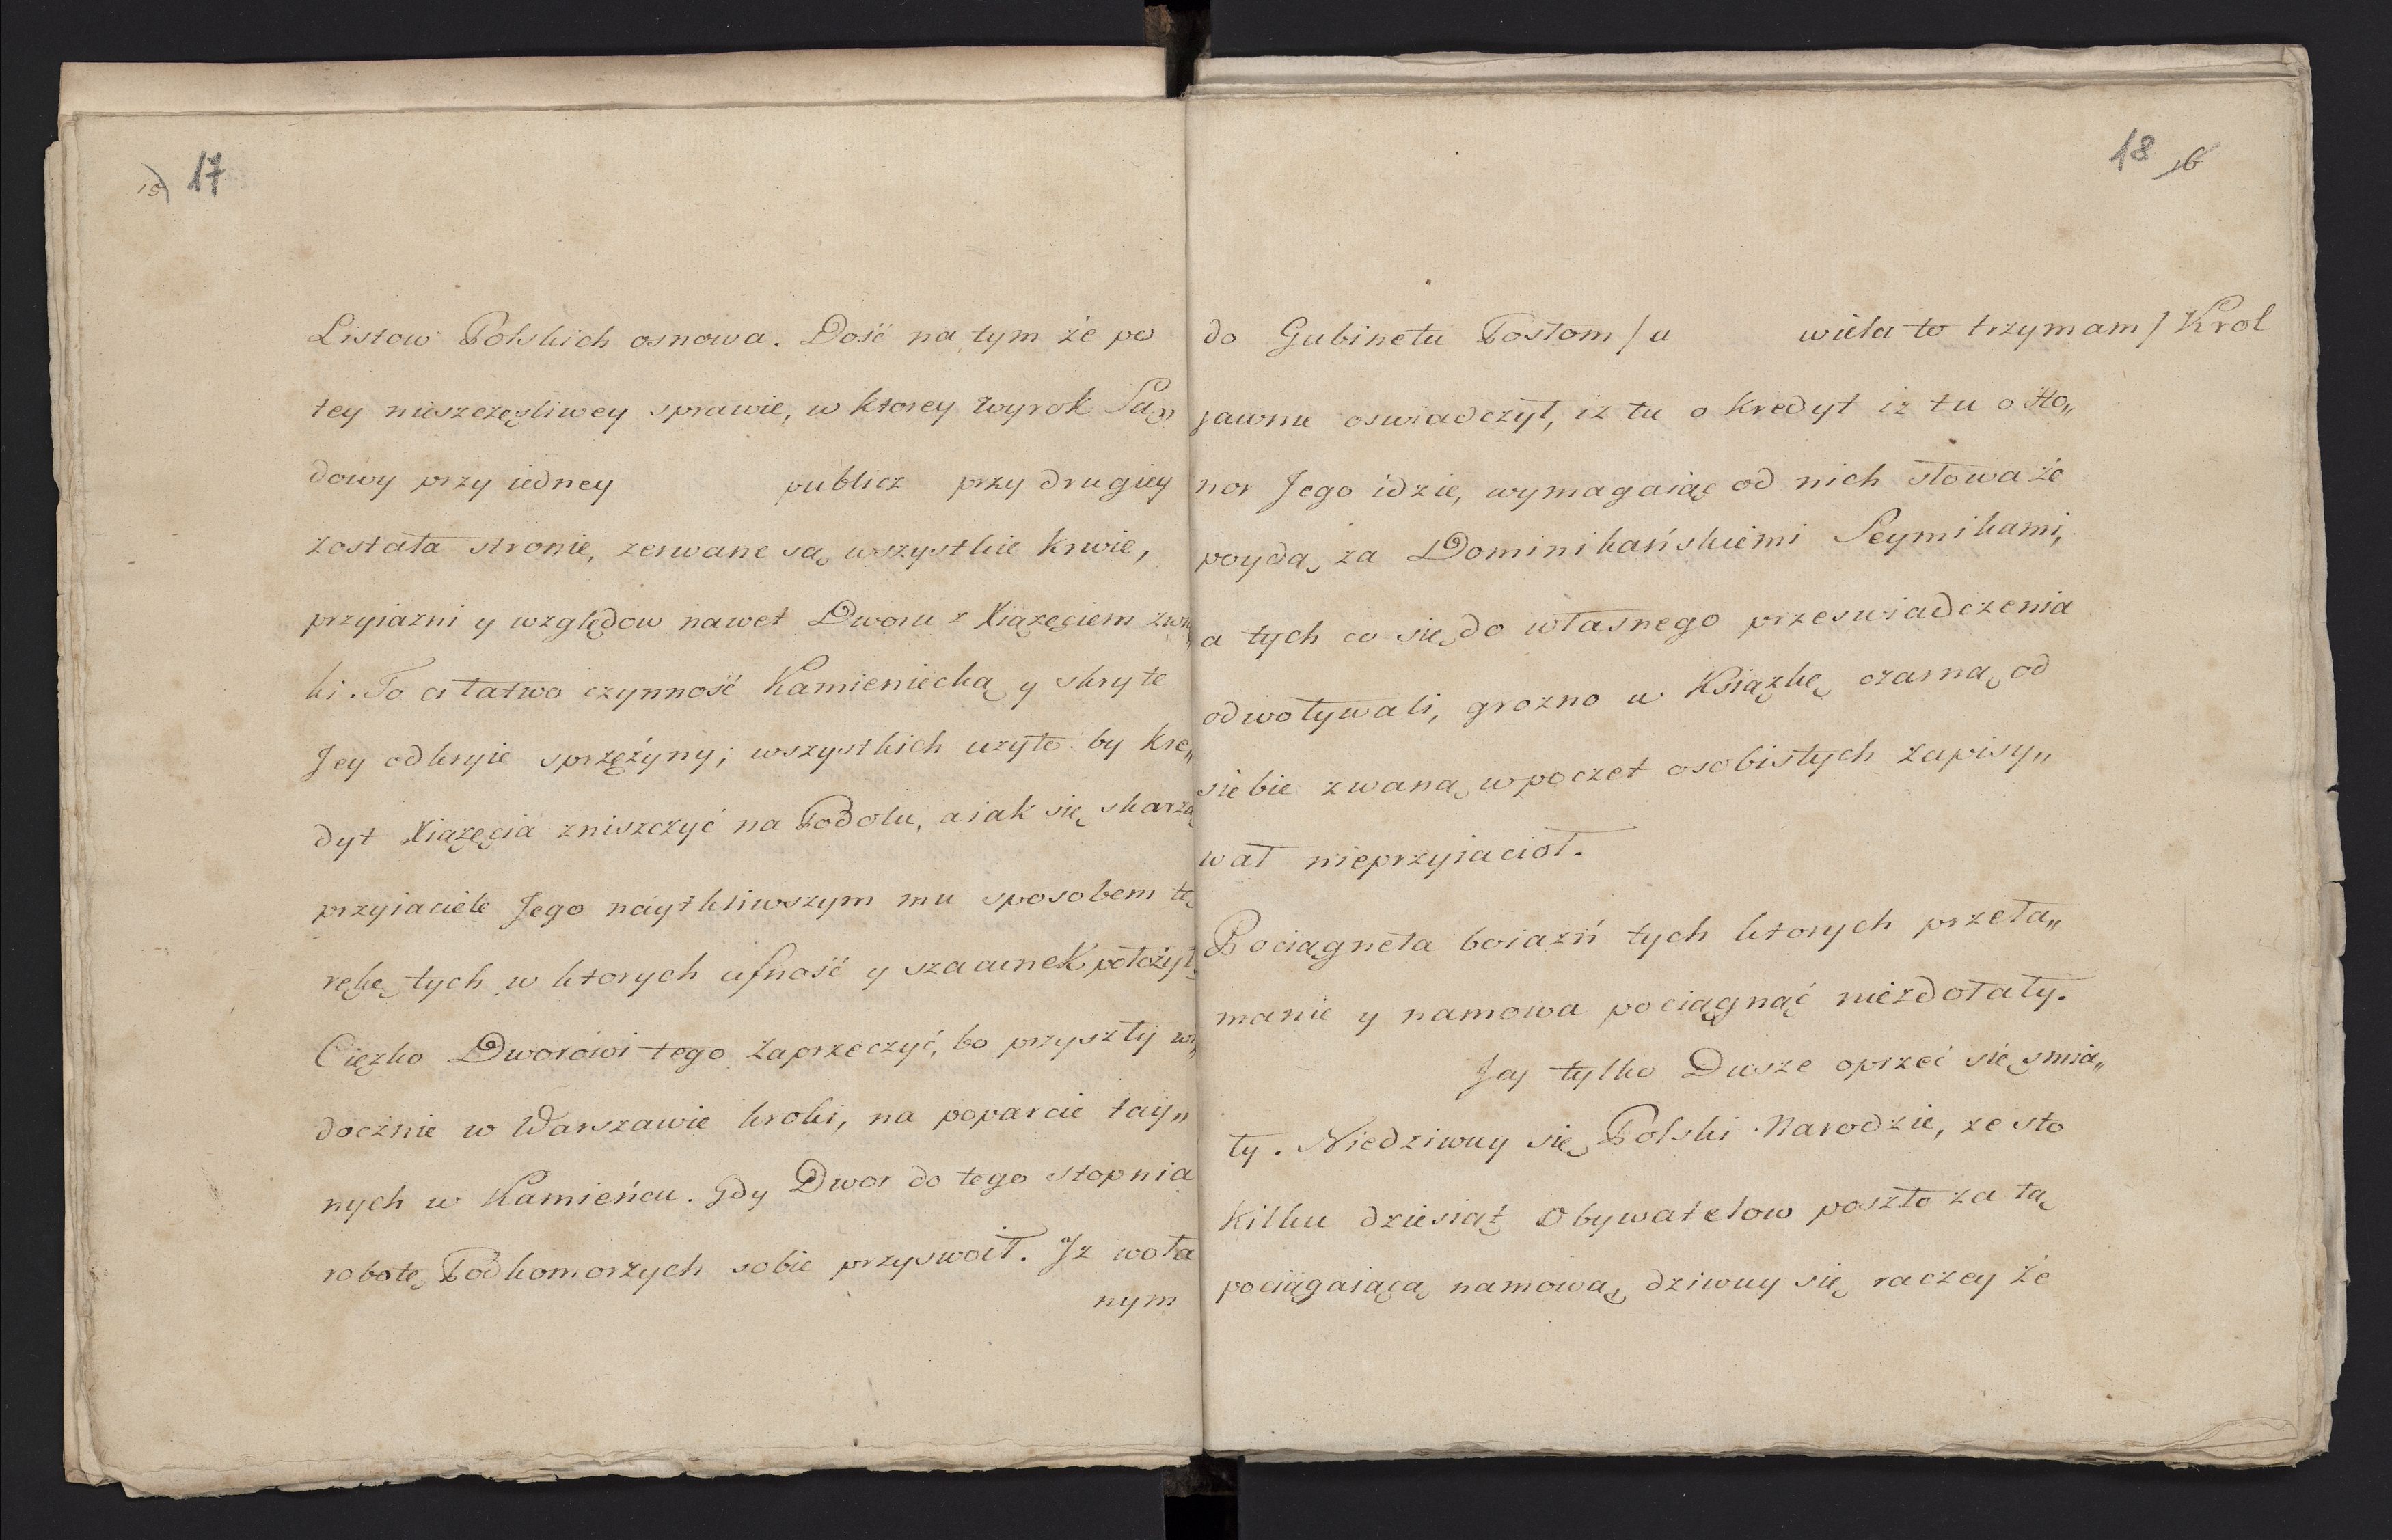 15) 17
Listow Polskich osnowa. Dość na tym że po
tey nieszczęsliwey sprawie, w ktorey wyrok Są„
dowy przy iedney publicz przy drugiey
została stronie, zerwane są wszystkie krwie,
przyiazni y względow nawet Dworu z Xiązęciem zwią„
ki. To ci łatwo czynność Kamieniecką y skryte
Jey odkryie sprzężyny; wszystkich użyto by kre„
dyt Xiązęcia zniszczyć na Podolu, a iak się skarzą
przyiaciele Jego náytkliwszym mu sposobem tę
rękę tych w ktorych ufność y szacunek położył
Cięzko Dworowi tego zaprzeczyć, bo przyszły wi„
docznie w Warszawie kroki, na poparcie tay„
nych w Kamieńcu. Gdy Dwor do tego stopnia
robotę Podkomorzych sobie przyswoił. Jz woła
nym
18 16
do Gabinetu Posłom / a wiela to trzymam / Krol
jawnie oswiadczył, iz tu o kredyt iz tu o Ho„
nor Jego idzie, wymagaiąc od nich słowa że
poydą za Dominikańskiemi Seymikami,
a tych co się do własnego przeswiadczenia
odwoływali, grozno w Ksiązkę czarną od
siebie zwaną w poczet osobistych zapisy„
wał nieprzyiacioł.
Pociągneła boiazń tych ktorych przeła„
manie y namowa pociągnąć niezdołały.
Jey tylko Dusze oprzeć się smia„
ły. Niedziwuy się Polski Narodzie, ze sto
kilku dziesiąt Obywatelow poszło za tą
pociągaiącą namową, dziwuy się raczey że